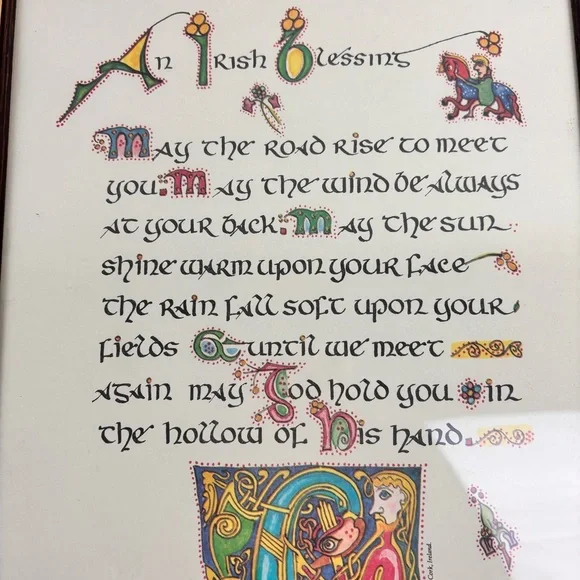 An Irish Blessing
May the road rise to meet
you: May the wind be always
at your back: May the sun
shine warm upon your face
the rain fall soft upon your
fields & until we meet
again may God hold you in
the hollow of His hand.
Cork, Ireland.